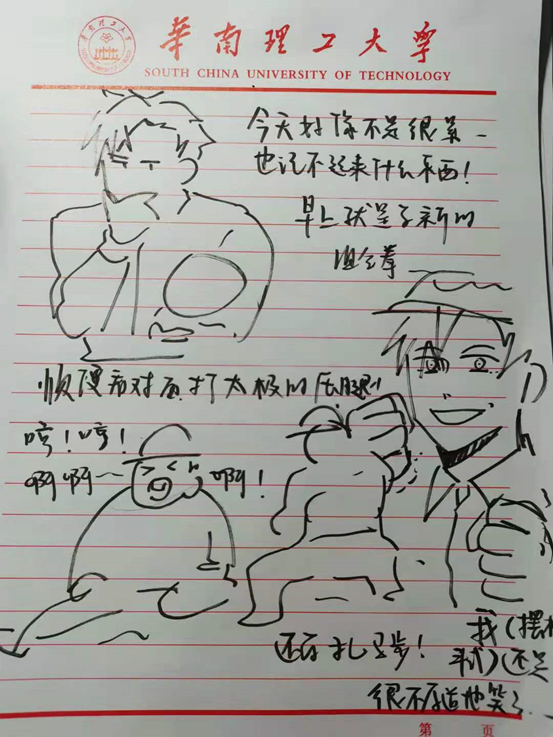 华南理工大学
SOUTH CHINA UNIVERSITY OF TECHNOLOGY
今天好像不是很累
也记不起来什么东西！
早上就是学新的
组合拳
顺便看对面打太极的压腿
哼！哼！
啊啊～ 啊！
还有扎马步！
我（摆
式）（还是
很不厚道地笑了
第 页